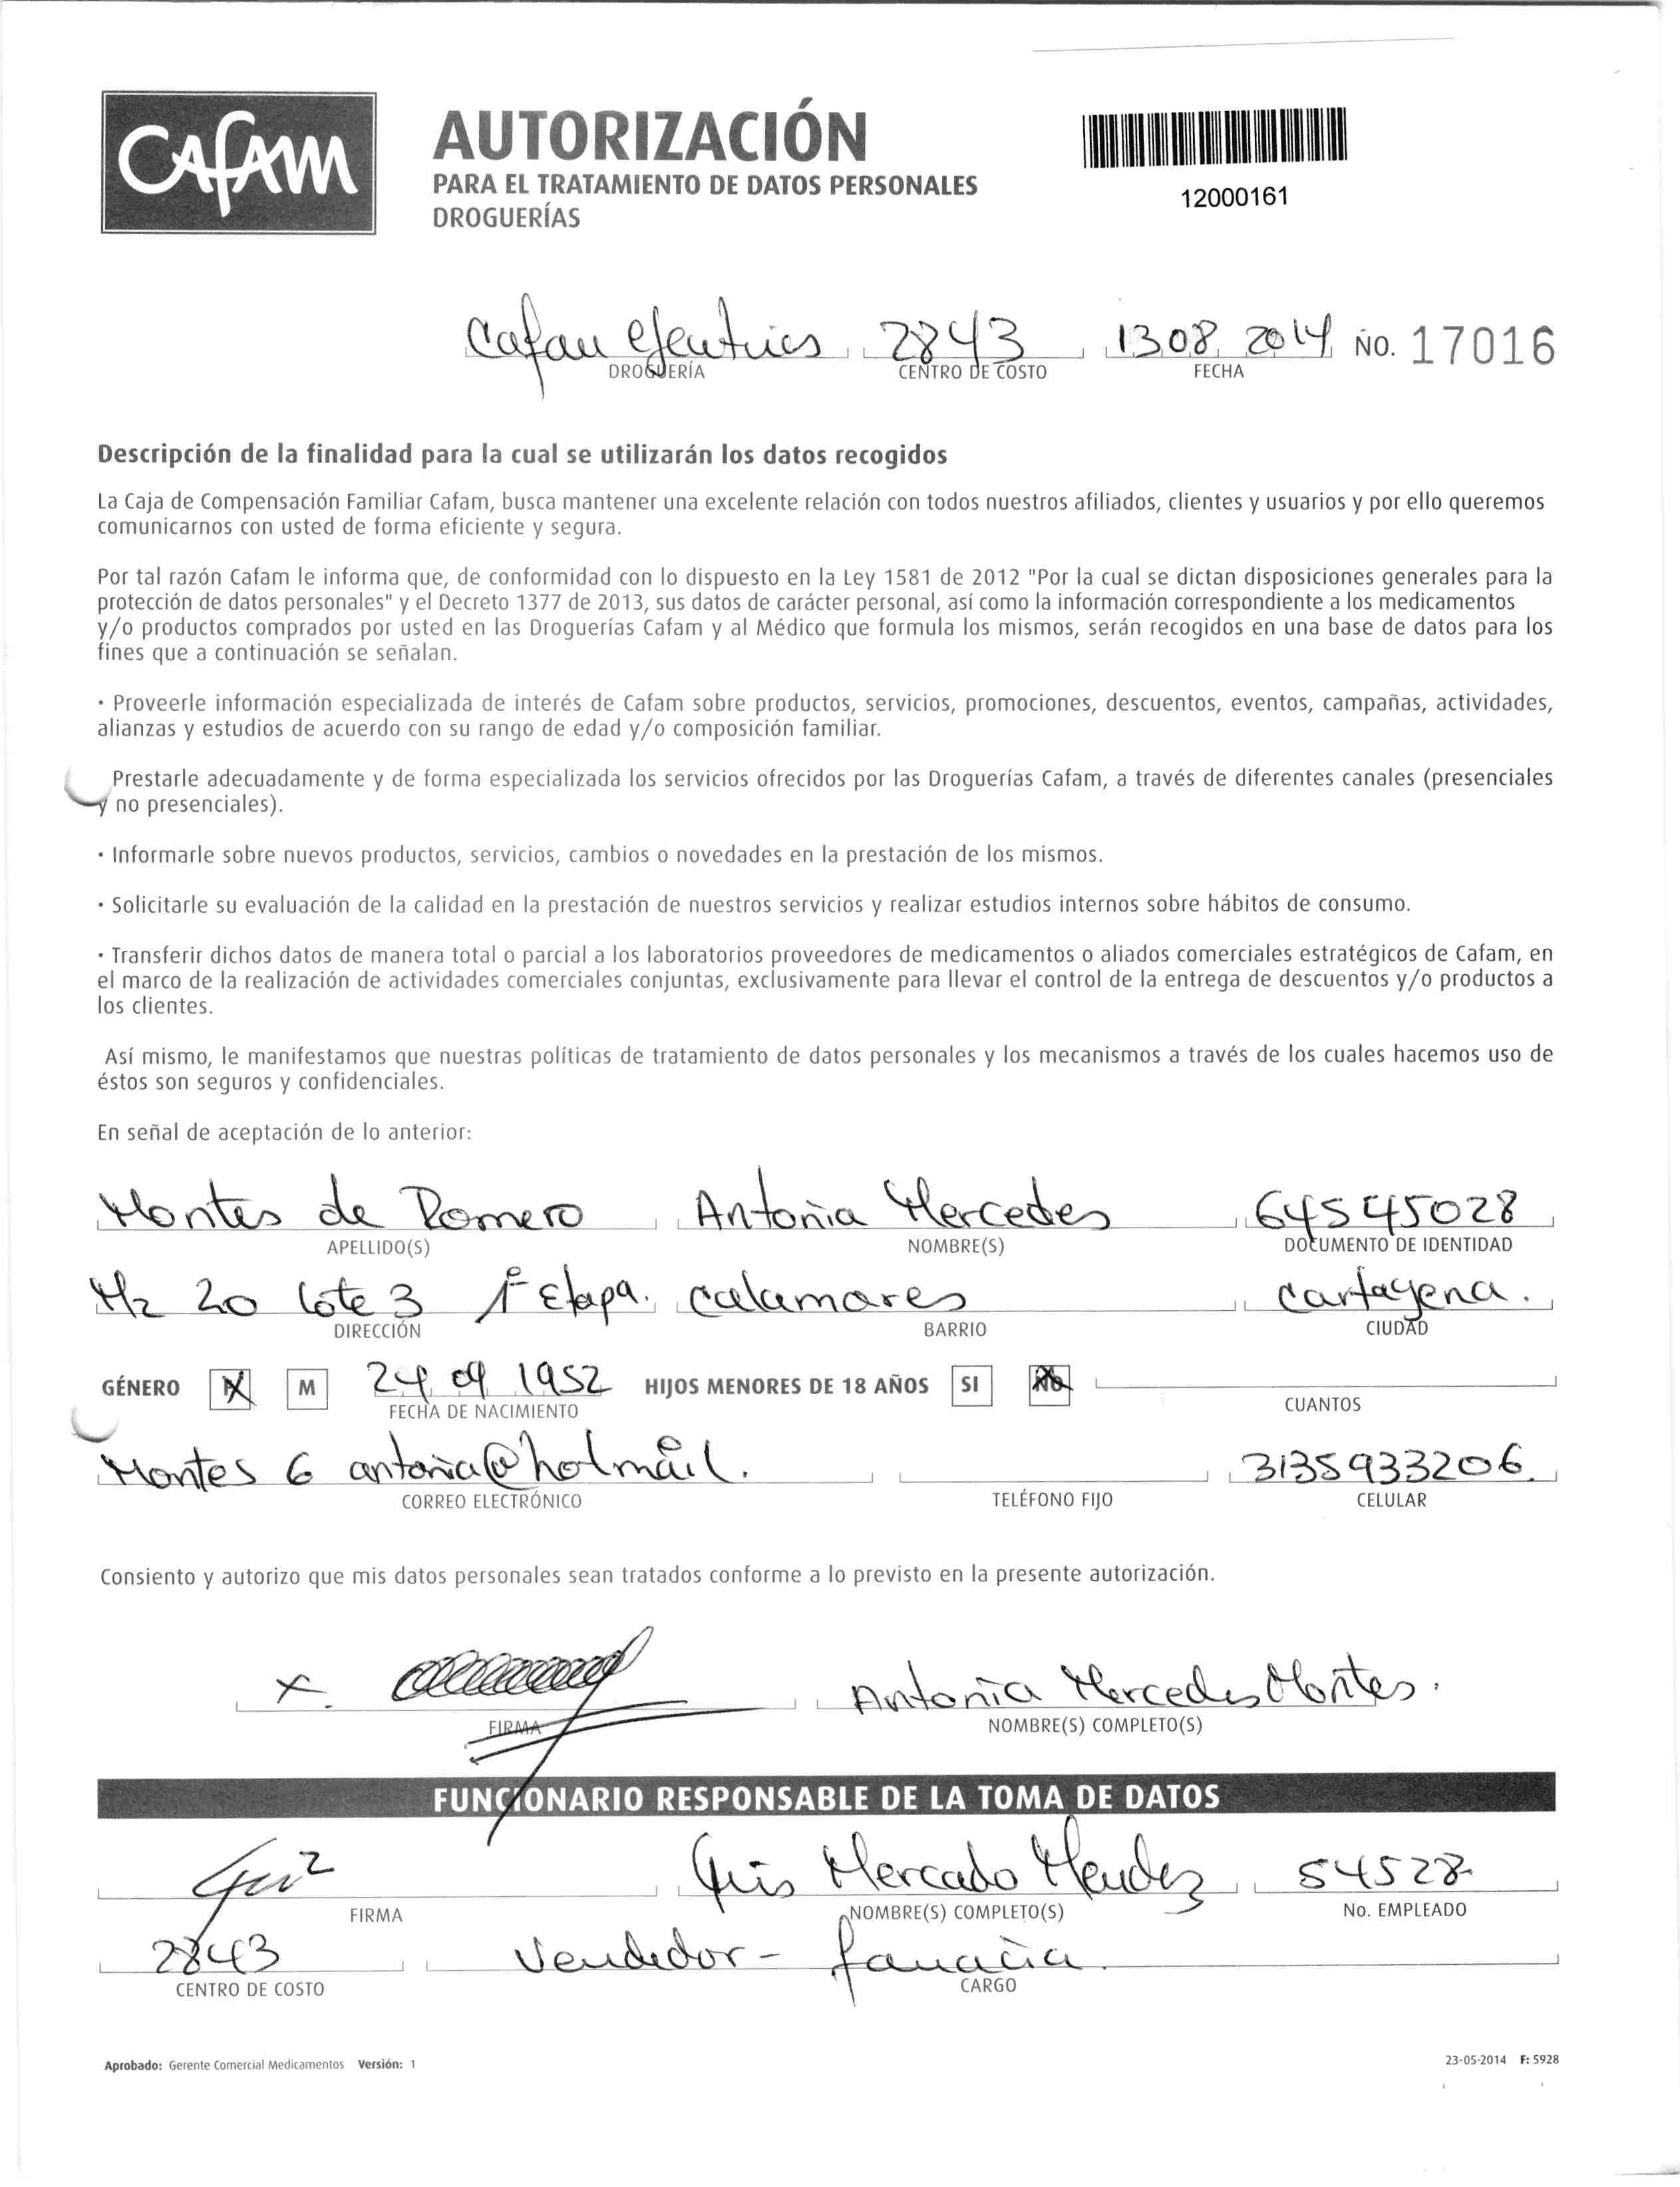 CAFAM
AUTORIZACIÓN
PARA EL TRATAMIENTO DE DATOS PERSONALES
DROGUERÍAS
12000161
2843 13 08 2014 NO. 17016
DROGUERÍA CENTRO DE COSTO FECHA
Descripción de la finalidad para la cual se utilizarán los datos recogidos
La Caja de Compensación Familiar Cafam, busca mantener una excelente relación con todos nuestros afiliados, clientes y usuarios y por ello queremos
comunicarnos con usted de forma eficiente y segura.
Por tal razón Cafam le informa que, de conformidad con lo dispuesto en la Ley 1581 de 2012 "Por la cual se dictan disposiciones generales para la
protección de datos personales" y el Decreto 1377 de 2013, sus datos de carácter personal, así como la información correspondiente a los medicamentos
y/o productos comprados por usted en las Droguerías Cafam y al Médico que formula los mismos, serán recogidos en una base de datos para los
fines que a continuación se señalan.
· Proveerle información especializada de interés de Cafam sobre productos, servicios, promociones, descuentos, eventos, campañas, actividades,
alianzas y estudios de acuerdo con su rango de edad y/o composición familiar.
Prestarle adecuadamente y de forma especializada los servicios ofrecidos por las Droguerías Cafam, a través de diferentes canales (presenciales
y no presenciales).
· Informarle sobre nuevos productos, servicios, cambios o novedades en la prestación de los mismos.
· Solicitarle su evaluación de la calidad en la prestación de nuestros servicios y realizar estudios internos sobre hábitos de consumo.
· Transferir dichos datos de manera total o parcial a los laboratorios proveedores de medicamentos o aliados comerciales estratégicos de Cafam, en
el marco de la realización de actividades comerciales conjuntas, exclusivamente para llevar el control de la entrega de descuentos y/o productos a
los clientes.
Así mismo, le manifestamos que nuestras políticas de tratamiento de datos personales y los mecanismos a través de los cuales hacemos uso de
éstos son seguros y confidenciales.
En señal de aceptación de lo anterior:
Montes de Romero Antonia Mercedes 64545028
APELLIDO(S) NOMBRE(S) DOCUMENTO DE IDENTIDAD
Mz 20 lote 3 1ª Etapa. Calamares Cartagena.
DIRECCIÓN BARRIO CIUDAD
GÉNERO F M 24 09 1952 HIJOS MENORES DE 18 AÑOS SI NO
FECHA DE NACIMIENTO CUANTOS
Montes 6 antonia@hotmail. 3135933206
CORREO ELECTRÓNICO TELÉFONO FIJO CELULAR
Consiento y autorizo que mis datos personales sean tratados conforme a lo previsto en la presente autorización.
x Antonia Mercedes Montes.
FIRMA NOMBRE(S) COMPLETO(S)
FUNCIONARIO RESPONSABLE DE LA TOMA DE DATOS
Mercado Mendez 54528
FIRMA NOMBRE(S) COMPLETO(S) No. EMPLEADO
2843 Vendedor -
CENTRO DE COSTO CARGO
Aprobado: Gerente Comercial Medicamentos Versión: 1 23-05-2014 F: 5928